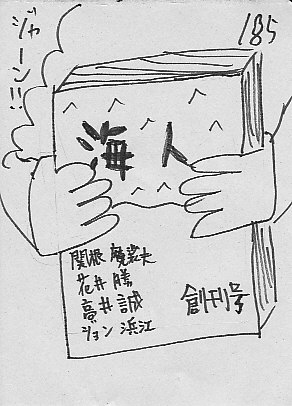 185
ジャーン!!
海人
関根
花井 勝
高井 誠
ション 浜江
創刊号